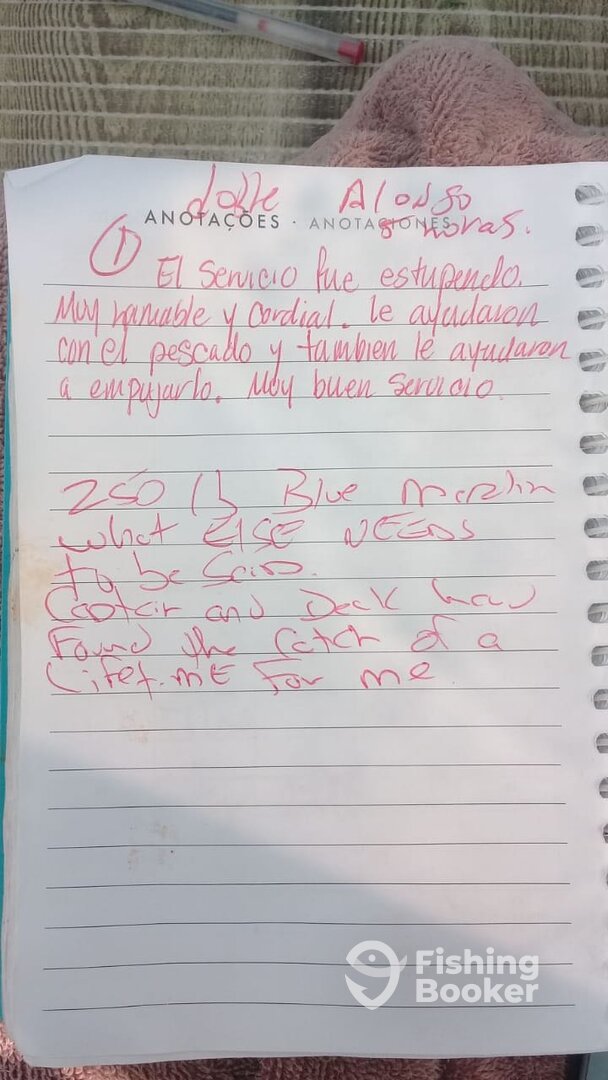 Alonso
ANOTAÇÕES · ANOTACIONES
8 horas.
1
El servicio fue estupendo.
Muy hamable y Cordial. le ayudaron
con el pescado y tambien le ayudaron
a empujarlo. Muy buen servicio.
250 lb Blue marlin
what ELSE NEEDS
to be Said.
and Deck
Found the Catch of a
Lifetime For me.
Fishing
Booker